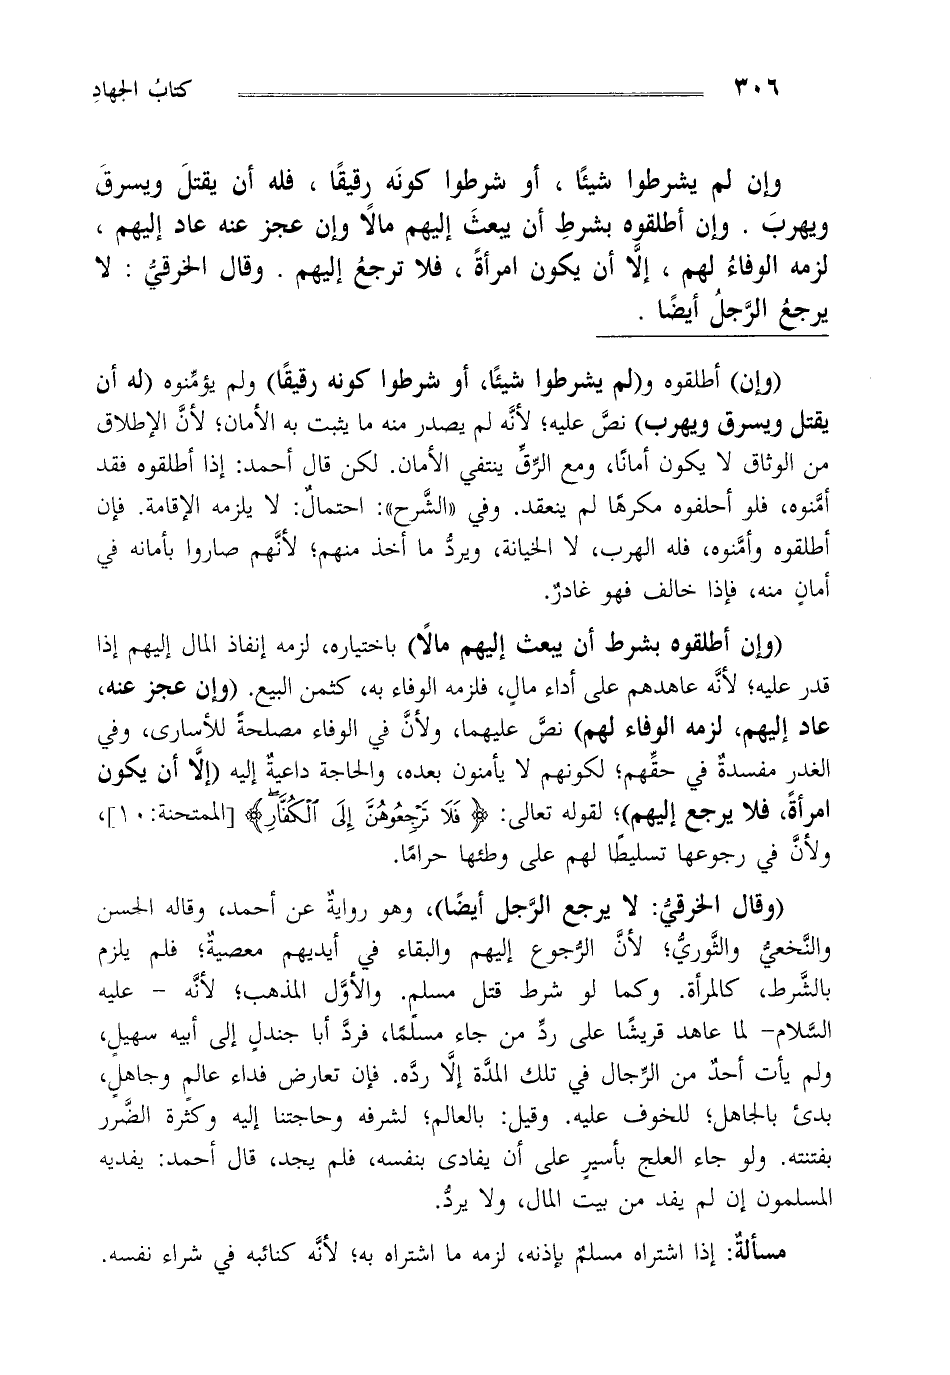 ٣٠٦ كتابُ الجهادِ
وإن لم يشرطوا شيئًا ، أو شرطوا كونَه رقيقًا ، فله أن يقتلَ ويسرقَ
ويهربَ . وإن أطلقوه بشرطِ أن يبعثَ إليهم مالًا وإن عجز عنه عاد إليهم ،
لزمه الوفاءُ لهم ، إلَّا أن يكون امرأةً ، فلا ترجعُ إليهم . وقال الخرقيُّ : لا
يرجعُ الرَّجلُ أيضًا .
(وإن) أطلقوه و(لم يشرطوا شيئًا، أو شرطوا كونه رقيقًا) ولم يؤمِّنوه (له أن
يقتل ويسرق ويهرب) نصَّ عليه؛ لأنَّه لم يصدر منه ما يثبت به الأمان؛ لأنَّ الإطلاق
من الوثاق لا يكون أمانًا، ومع الرِّقِّ ينتفي الأمان. لكن قال أحمد: إذا أطلقوه فقد
أمَّنوه، فلو أحلفوه مكرهًا لم ينعقد. وفي «الشَّرح»: احتمالٌ: لا يلزمه الإقامة. فإن
أطلقوه وأمَّنوه، فله الهرب، لا الخيانة، ويردُّ ما أخذ منهم؛ لأنَّهم صاروا بأمانه في
أمانٍ منه، فإذا خالف فهو غادرٌ.
(وإن أطلقوه بشرط أن يبعث إليهم مالًا) باختياره، لزمه إنفاذ المال إليهم إذا
قدر عليه؛ لأنَّه عاهدهم على أداء مالٍ، فلزمه الوفاء به، كثمن البيع. (وإن عجز عنه،
عاد إليهم، لزمه الوفاء لهم) نصَّ عليهما، ولأنَّ في الوفاء مصلحةً للأسارى، وفي
الغدر مفسدةٌ في حقِّهم؛ لكونهم لا يأمنون بعده، والحاجة داعيةٌ إليه (إلَّا أن يكون
امرأةً، فلا يرجع إليهم)؛ لقوله تعالى: ﴿فَلَا تَرْجِعُوهُنَّ إِلَى ٱلْكُفَّارِ﴾ [الممتحنة: ١٠]،
ولأنَّ في رجوعها تسليطًا لهم على وطئها حرامًا.
(وقال الخرقيُّ: لا يرجع الرَّجل أيضًا)، وهو روايةٌ عن أحمد، وقاله الحسن
والنَّخعيُّ والثَّوريُّ؛ لأنَّ الرُّجوع إليهم والبقاء في أيديهم معصيةٌ؛ فلم يلزم
بالشَّرط، كالمرأة. وكما لو شرط قتل مسلمٍ. والأوَّل المذهب؛ لأنَّه - عليه
السَّلام- لما عاهد قريشًا على ردِّ من جاء مسلمًا، فردَّ أبا جندلٍ إلى أبيه سهيلٍ،
ولم يأت أحدٌ من الرِّجال في تلك المدَّة إلَّا ردَّه. فإن تعارض فداء عالمٍ وجاهلٍ،
بدئ بالجاهل؛ للخوف عليه. وقيل: بالعالم؛ لشرفه وحاجتنا إليه وكثرة الضَّرر
بفتنته. ولو جاء العلج بأسيرٍ على أن يفادى بنفسه، فلم يجد، قال أحمد: يفديه
المسلمون إن لم يفد من بيت المال، ولا يردُّ.
مسألةٌ: إذا اشتراه مسلمٌ بإذنه، لزمه ما اشتراه به؛ لأنَّه كنائبه في شراء نفسه.